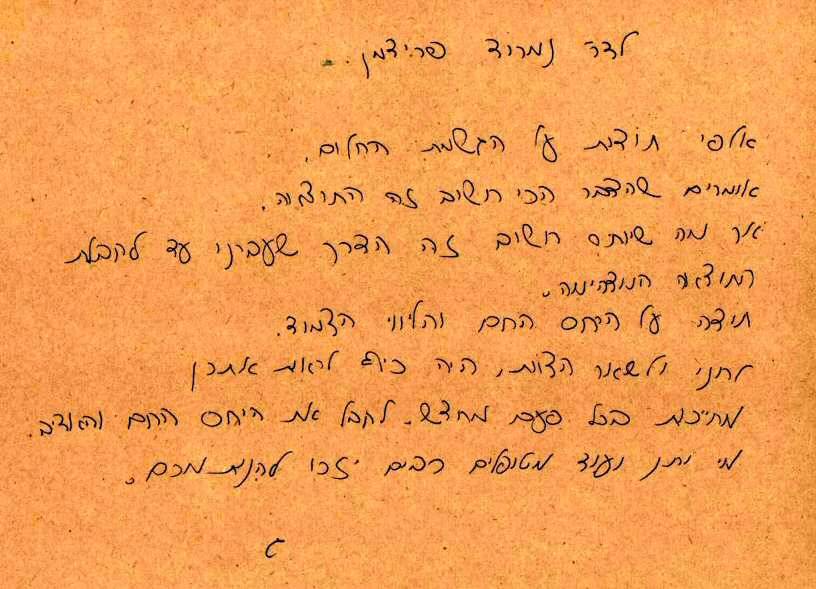 לדר נמרוד פרידמן.
אלפי תודות על הגשמת החלום.
אומרים שהדבר הכי חשוב זה התוצאה.
אך מה שיותר חשוב זה הדרך שעברנו עד לקבלת
התוצאה המדהימה.
תודה על היחס החם והליווי הצמוד.
לחני ולשאר הצוות, היה כיף לראות אתכן
מחייכות בכל פעם מחדש. לקבל את היחס החם והאדיב.
מי יתן ועוד מטופלים רבים יזכו להנות מכם.
ג